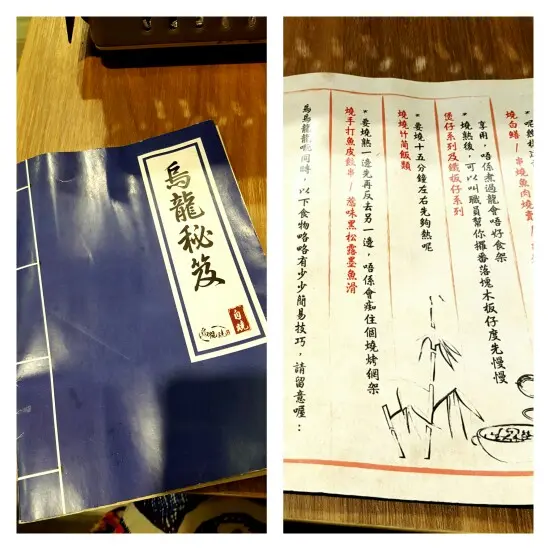 烏龍秘笈
自燒
烏烏龍龍呢同時，以下食物略略有少少簡易技巧，請留意喔：
燒手打魚皮餃串/葱味黑松露墨魚滑
*要燒熟一邊先再反去另一邊，唔係會痴住個燒烤網架
燒燒竹筒飯類
*要燒十五分鐘左右先夠熟呢
煲仔系列及鐵板仔系列
*燒熟後，可以叫職員幫你攞番落塊木板仔度先慢慢
享用，唔係煮過龍會唔好食架
燒白鱔/串燒魚肉燒賣